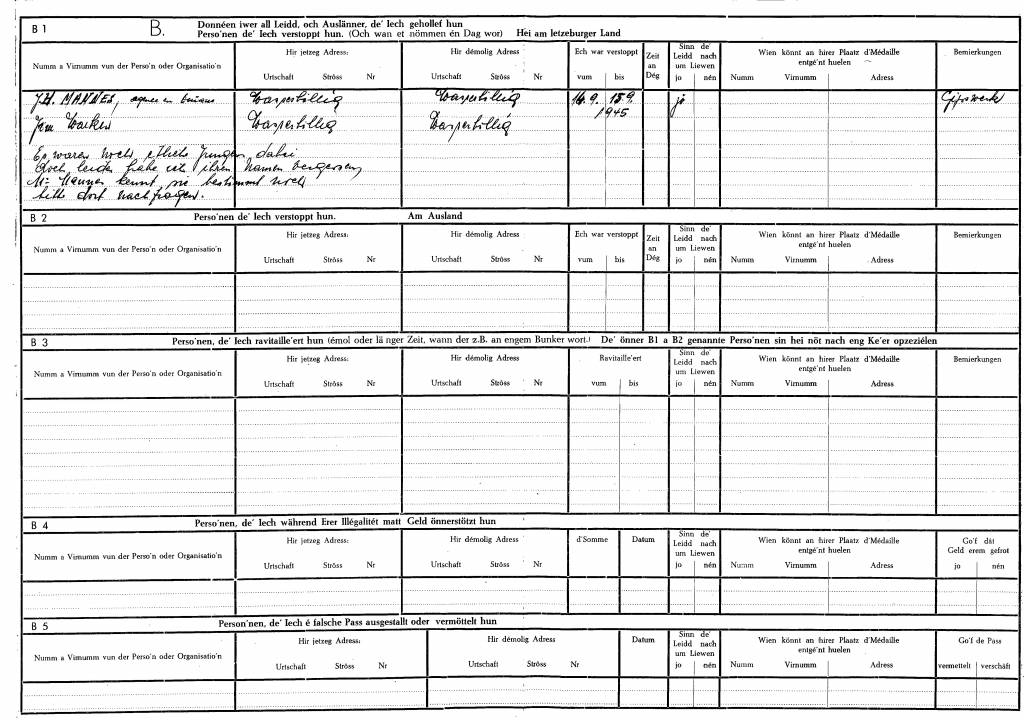 B 1 B. Donnéen iwer all Leidd, och Auslänner, de' Iech gehollef hun
Perso'nen de' Iech verstoppt hun. (Och wan et nömmen én Dag wor) Hei am letzeburger Land
Numm a Virnumm vun der Perso'n oder Organisatio'n
Hir jetzeg Adress:
Urtschaft Ströss Nr
Hir démolig Adress
Urtschaft Ströss Nr
Ech war verstoppt
vum bis
Zeit
an
Dég
Sinn de'
Leidd nach
um Liewen
jo nén
Wien könnt an hirer Plaatz d'Médaille
entgé'nt huelen
Numm Virnumm Adress
Bemierkungen
Wasserbillig Wasserbillig 15.9. jo Gipswerk
1945
Wasserbillig Wasserbillig
Es waren noch etliche Jungen dabei
Doch leider habe ich ihren Namen vergessen
kennt sie bestimmt noch
bitte dort nachfragen.
B 2 Perso'nen de' Iech verstoppt hun. Am Ausland
Numm a Virnumm vun der Perso'n oder Organisatio'n
Hir jetzeg Adress:
Urtschaft Ströss Nr
Hir démolig Adress
Urtschaft Ströss Nr
Ech war verstoppt
vum bis
Zeit
an
Dég
Sinn de'
Leidd nach
um Liewen
jo nén
Wien könnt an hirer Plaatz d'Médaille
entgé'nt huelen
Numm Virnumm Adress
Bemierkungen
B 3 Perso'nen, de' Iech ravitaille'ert hun (émol oder lä nger Zeit, wann der z.B. an engem Bunker wort.) De' önner B1 a B2 genannte Perso'nen sin hei nöt nach eng Ke'er opzeziélen
Numm a Virnumm vun der Perso'n oder Organisatio'n
Hir jetzeg Adress:
Urtschaft Ströss Nr
Hir démolig Adress
Urtschaft Ströss Nr
Ravitaille'ert
vum bis
Sinn de'
Leidd nach
um Liewen
jo nén
Wien könnt an hirer Plaatz d'Médaille
entgé'nt huelen
Numm Virnumm Adress
Bemierkungen
B 4 Perso'nen, de' Iech während Erer Illégalitét matt Geld önnerstötzt hun
Numm a Vimumm vun der Perso'n oder Organisatio'n
Hir jetzeg Adress:
Urtschaft Ströss Nr
Hir démolig Adress
Urtschaft Ströss Nr
d'Somme Datum
Sinn de'
Leidd nach
um Liewen
jo nén
Wien könnt an hirer Plaatz d'Médaille
entgé'nt huelen
Numm Virnumm Adress
Go'f dât
Geld erem gefrot
jo nén
B 5 Person'nen, de' Iech é falsche Pass ausgestallt oder vermöttelt hun
Numm a Virnumm vun der Perso'n oder Organisatio'n
Hir jetzeg Adress:
Urtschaft Ströss Nr
Hir démolig Adress
Urtschaft Ströss Nr
Datum
Sinn de'
Leidd nach
um Liewen
jo nén
Wien könnt an hirer Plaatz d'Médaille
entgé'nt huelen
Numm Virnumm Adress
Go'f de Pass
vermettelt verschäft